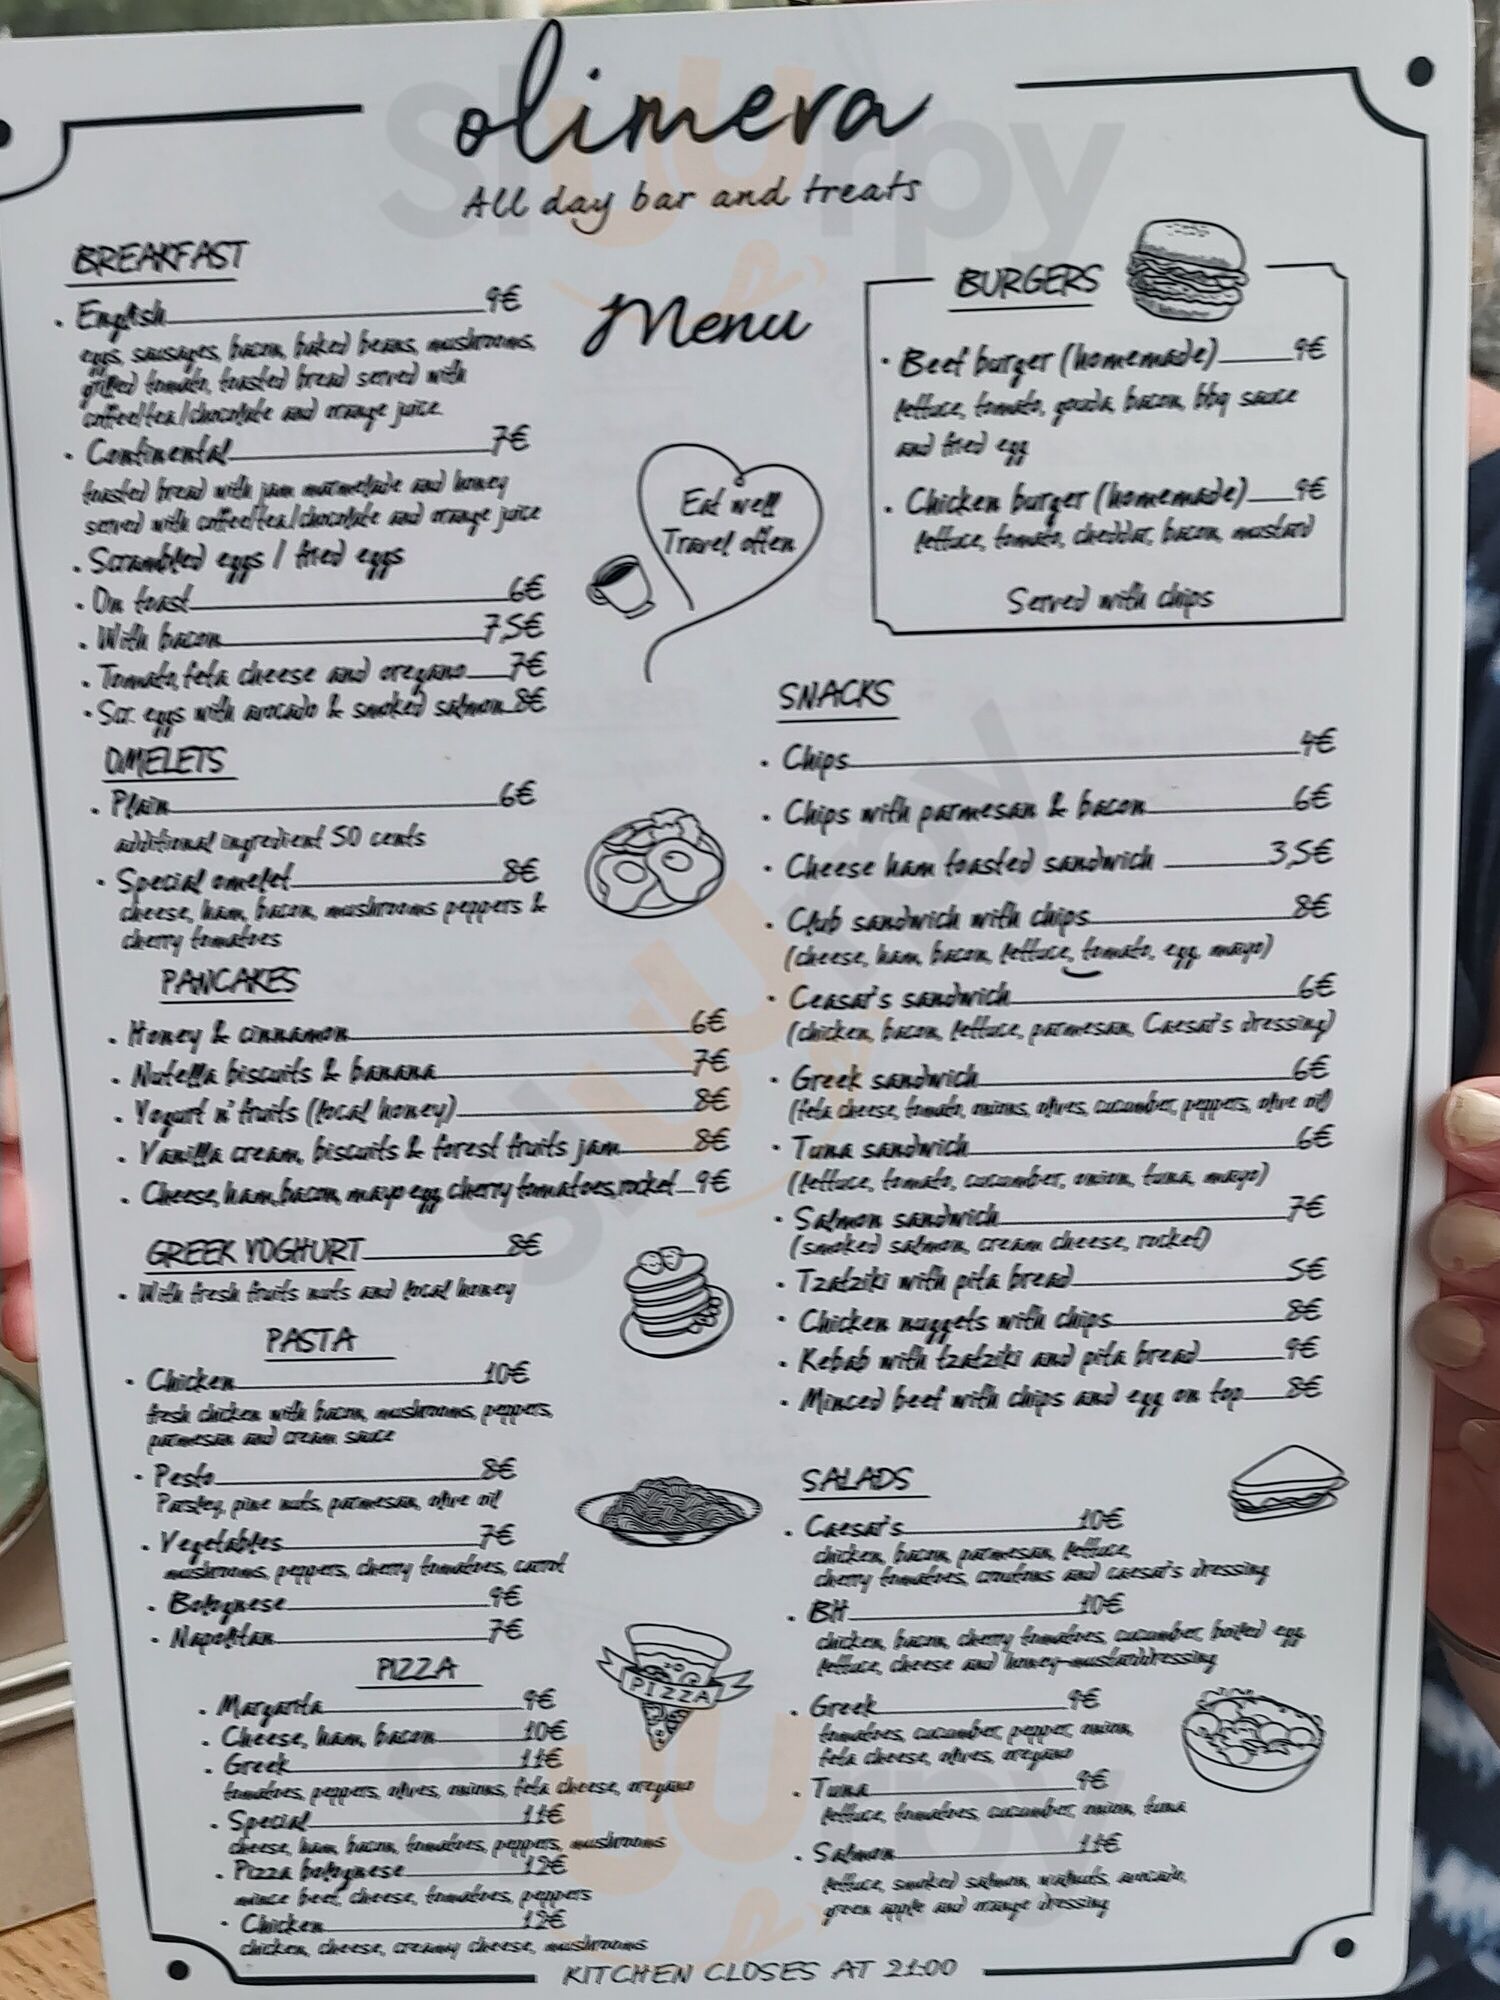 olimera
All day bar and treats
Menu
BREAKFAST
· English 9€
eggs, sausages, bacon, baked beans, mushrooms,
grilled tomato, toasted bread served with
coffee/tea/chocolate and orange juice
· Continental 7€
toasted bread with jam marmelade and honey
served with coffee/tea/chocolate and orange juice
· Scrambled eggs / fried eggs
· On toast 6€
· With bacon 7,5€
· Tomato, feta cheese and oregano 7€
· Scr. eggs with avocado & smoked salmon 8€
OMELETS
· Plain 6€
additional ingredient 50 cents
· Special omelet 8€
cheese, ham, bacon, mushrooms peppers &
cherry tomatoes
PANCAKES
· Honey & cinnamon 6€
· Nutella biscuits & banana 7€
· Yogurt n' fruits (local honey) 8€
· Vanilla cream, biscuits & forest fruits jam 8€
· Cheese, ham, bacon, mayo egg, cherry tomatoes, rocket 9€
GREEK YOGHURT 8€
· With fresh fruits nuts and local honey
PASTA
· Chicken 10€
fresh chicken with bacon, mushrooms, peppers,
parmesan and cream sauce
· Pesto 8€
Parsley, pine nuts, parmesan, olive oil
· Vegetables 7€
mushrooms, peppers, cherry tomatoes, carrot
· Bolognese 9€
· Napolitan 7€
PIZZA
· Margarita 9€
· Cheese, ham, bacon 10€
· Greek 11€
tomatoes, peppers, olives, onions, feta cheese, oregano
· Special 11€
cheese, ham, bacon, tomatoes, peppers, mushrooms
· Pizza bolognese 12€
mince beef, cheese, tomatoes, peppers
· Chicken 12€
chicken, cheese, creamy cheese, mushrooms
Eat well
Travel often
PIZZA
BURGERS
· Beef burger (homemade) 9€
lettuce, tomato, gouda, bacon, bbq sauce
and fried egg
· Chicken burger (homemade) 9€
lettuce, tomato, cheddar, bacon, mustard
Served with chips
SNACKS
· Chips 4€
· Chips with parmesan & bacon 6€
· Cheese ham toasted sandwich 3,5€
· Club sandwich with chips 8€
(cheese, ham, bacon, lettuce, tomato, egg, mayo)
· Ceasar's sandwich 6€
(chicken, bacon, lettuce, parmesan, Caesar's dressing)
· Greek sandwich 6€
(feta cheese, tomato, onions, olives, cucumber, peppers, olive oil)
· Tuna sandwich 6€
(lettuce, tomato, cucumber, onion, tuna, mayo)
· Salmon sandwich 7€
(smoked salmon, cream cheese, rocket)
· Tzatziki with pita bread 5€
· Chicken nuggets with chips 8€
· Kebab with tzatziki and pita bread 9€
· Minced beef with chips and egg on top 8€
SALADS
· Caesar's 10€
chicken, bacon, parmesan, lettuce,
cherry tomatoes, croutons and caesar's dressing
· BH 10€
chicken, bacon, cherry tomatoes, cucumber, boiled egg
lettuce, cheese and honey-mustarddressing
· Greek 9€
tomatoes, cucumber, pepper, onion,
feta cheese, olives, oregano
· Tuna 9€
lettuce, tomatoes, cucumber, onion, tuna
· Salmon 11€
lettuce, smoked salmon, walnuts, avocado,
green apple and orange dressing
KITCHEN CLOSES AT 21:00
Slurpy
Slurpy
Slurpy
Slurpy